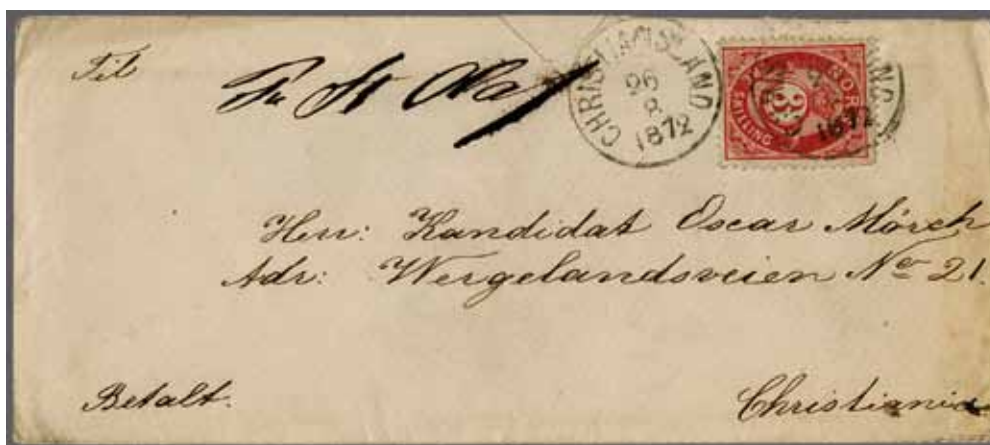 Til
Pr St Olaf
CHRISTIANSSAND
26
8
1872
NOR
3
SKILLING
1872
Herr: Kandidat Oscar Mörch
Adr: Wergelandsveien No 21.
Betalt.
Christiania